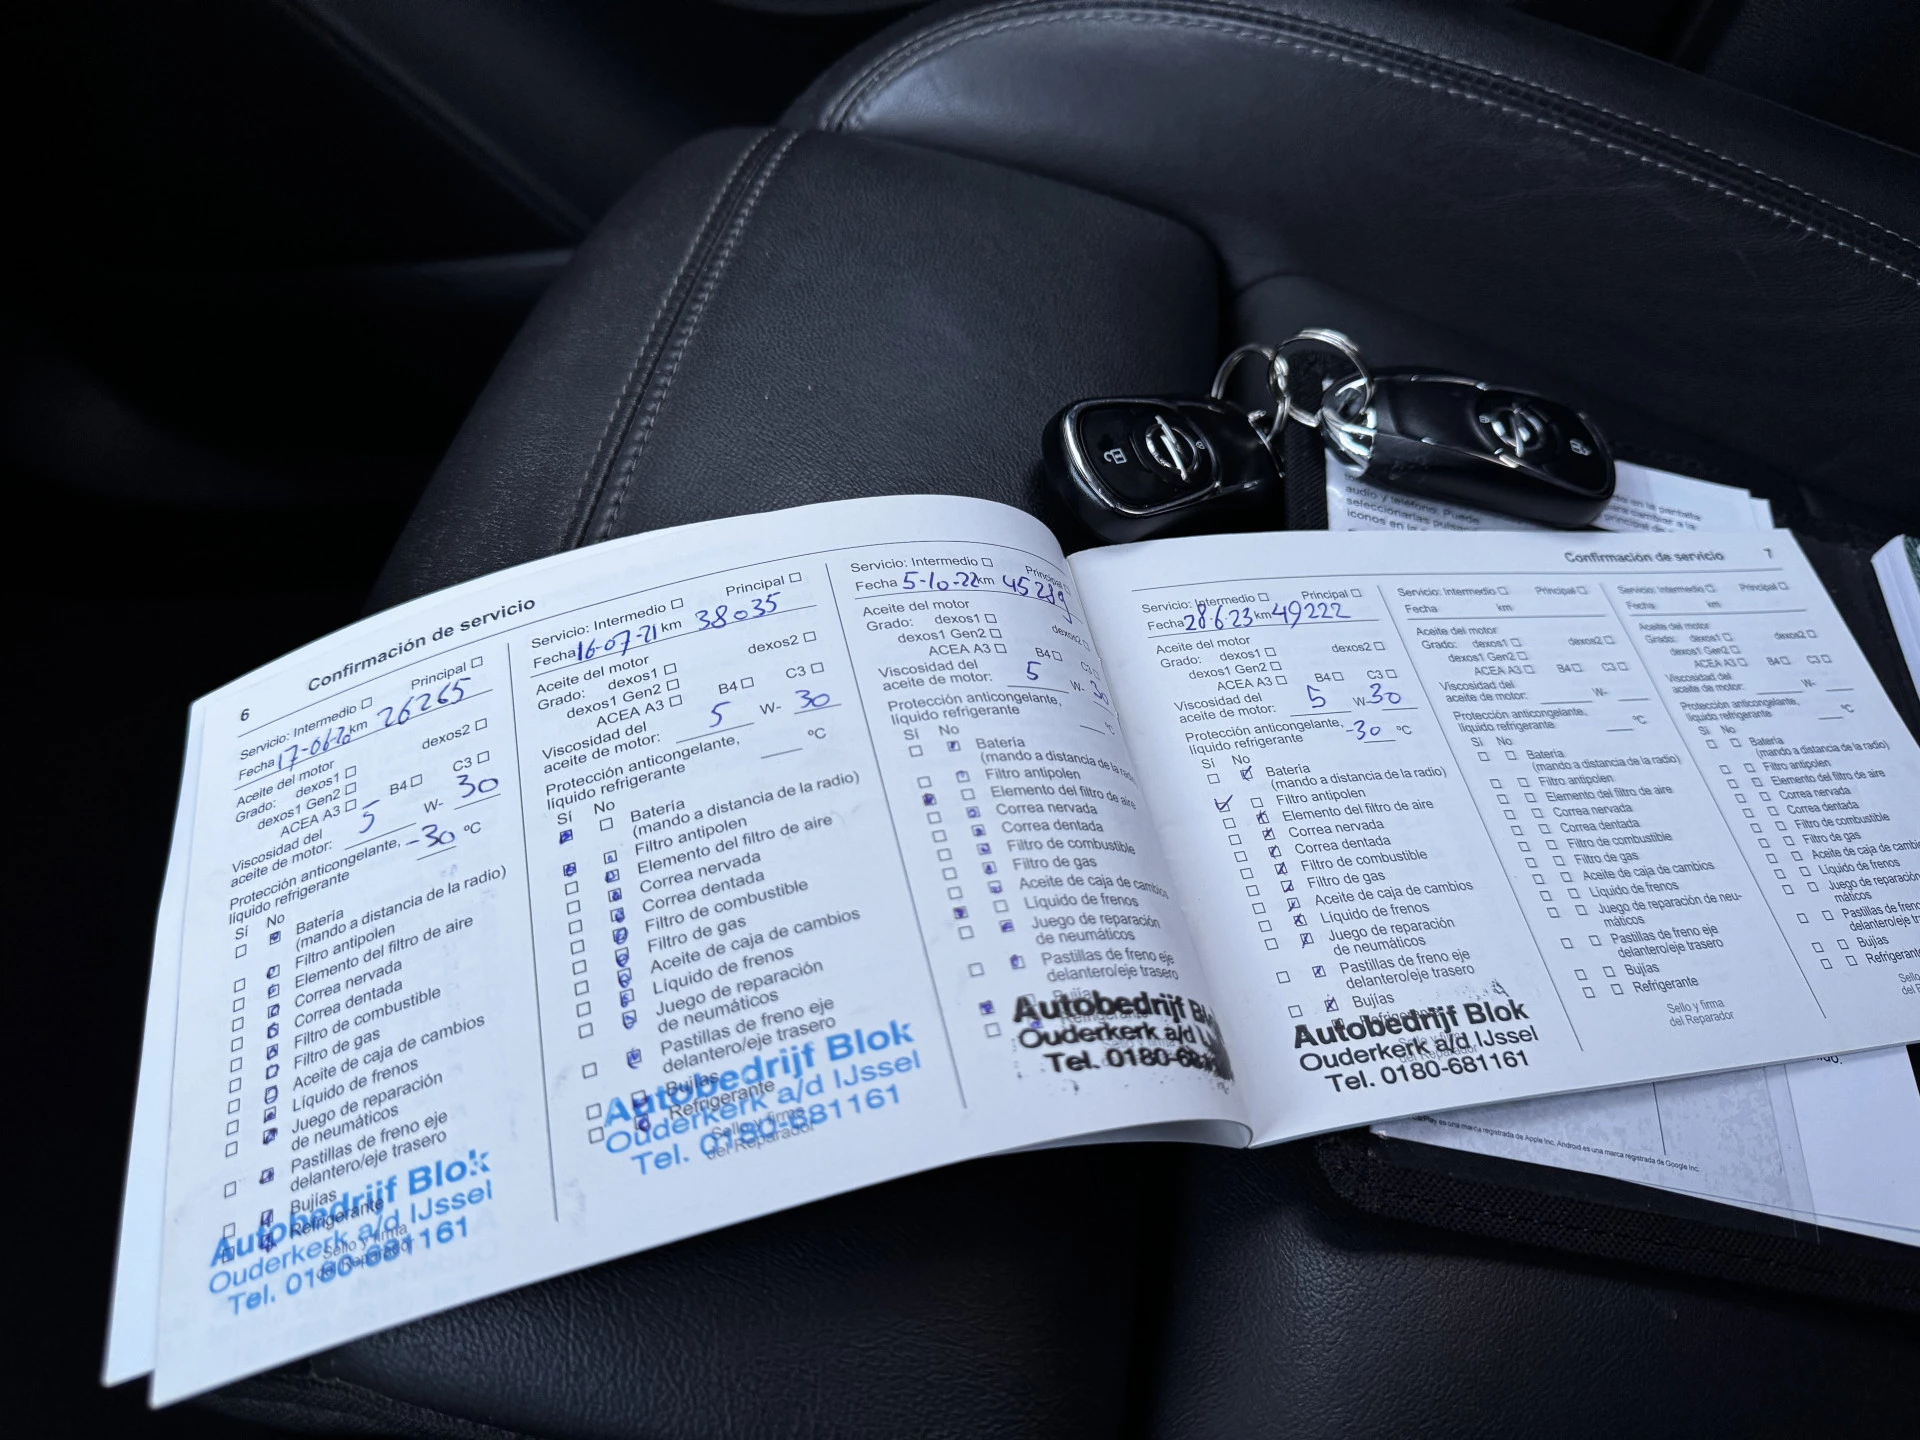 6
Confirmación de servicio
Servicio: Intermedio Principal
Fecha 17-06-20 km 26265
Aceite del motor
Grado: dexos1 dexos2
dexos1 Gen2
ACEA A3 B4 C3
Viscosidad del
aceite de motor: 5 W- 30
Protección anticongelante,
líquido refrigerante -30 °C
Sí No
Batería
(mando a distancia de la radio)
Filtro antipolen
Elemento del filtro de aire
Correa nervada
Correa dentada
Filtro de combustible
Filtro de gas
Aceite de caja de cambios
Líquido de frenos
Juego de reparación
de neumáticos
Pastillas de freno eje
delantero/eje trasero
Bujías
Refrigerante
Sello y firma
del Reparador
Autobedrijf Blok
Ouderkerk a/d IJssel
Tel. 0180-681161
Servicio: Intermedio Principal
Fecha 16-07-21 km 38035
Aceite del motor
Grado: dexos1 dexos2
dexos1 Gen2
ACEA A3 B4 C3
Viscosidad del
aceite de motor: 5 W- 30
Protección anticongelante,
líquido refrigerante °C
Sí No
Batería
(mando a distancia de la radio)
Filtro antipolen
Elemento del filtro de aire
Correa nervada
Correa dentada
Filtro de combustible
Filtro de gas
Aceite de caja de cambios
Líquido de frenos
Juego de reparación
de neumáticos
Pastillas de freno eje
delantero/eje trasero
Bujías
Refrigerante
Sello y firma
del Reparador
Autobedrijf Blok
Ouderkerk a/d IJssel
Tel. 0180-681161
Servicio: Intermedio Principal
Fecha 5-10-22 km
Aceite del motor
Grado: dexos1 dexos2
dexos1 Gen2
ACEA A3 B4
Viscosidad del
aceite de motor: 5 W- 30
Protección anticongelante,
líquido refrigerante °C
Sí No
Batería
(mando a distancia de la radio)
Filtro antipolen
Elemento del filtro de aire
Correa nervada
Correa dentada
Filtro de combustible
Filtro de gas
Aceite de caja de cambios
Líquido de frenos
Juego de reparación
de neumáticos
Pastillas de freno eje
delantero/eje trasero
Bujías
Autobedrijf
Ouderkerk a/d
Tel. 0180-681
Confirmación de servicio
7
Servicio: Intermedio Principal
Fecha 28-6-23 km 49222
Aceite del motor
Grado: dexos1 dexos2
dexos1 Gen2
ACEA A3 B4 C3
Viscosidad del
aceite de motor: 5 W- 30
Protección anticongelante,
líquido refrigerante -30 °C
Sí No
Batería
(mando a distancia de la radio)
Filtro antipolen
Elemento del filtro de aire
Correa nervada
Correa dentada
Filtro de combustible
Filtro de gas
Aceite de caja de cambios
Líquido de frenos
Juego de reparación
de neumáticos
Pastillas de freno eje
delantero/eje trasero
Bujías
Refrigerante
Autobedrijf Blok
Ouderkerk a/d IJssel
Tel. 0180-681161
Servicio: Intermedio Principal
Fecha km
Aceite del motor
Grado: dexos1 dexos2
dexos1 Gen2
ACEA A3 B4 C3
Viscosidad del
aceite de motor: W-
Protección anticongelante,
líquido refrigerante °C
Sí No
Batería
(mando a distancia de la radio)
Filtro antipolen
Elemento del filtro de aire
Correa nervada
Correa dentada
Filtro de combustible
Filtro de gas
Aceite de caja de cambios
Líquido de frenos
Juego de reparación de neu-
máticos
Pastillas de freno eje
delantero/eje trasero
Bujías
Refrigerante
Sello y firma
del Reparador
Servicio: Intermedio Principal
Fecha km
Aceite del motor
Grado: dexos1 dexos2
dexos1 Gen2
ACEA A3 B4 C3
Viscosidad del
aceite de motor: W-
Protección anticongelante,
líquido refrigerante °C
Sí No
Batería
(mando a distancia de la radio)
Filtro antipolen
Elemento del filtro de aire
Correa nervada
Correa dentada
Filtro de combustible
Filtro de gas
Aceite de caja de
Líquido de frenos
Juego de
máticos
Pastillas de
Bujías
audio y teléfono. Puede
iconos en la
en la pantalla
para cambiar a la
es una marca registrada de Apple Inc. Android es una marca registrada de Google Inc.